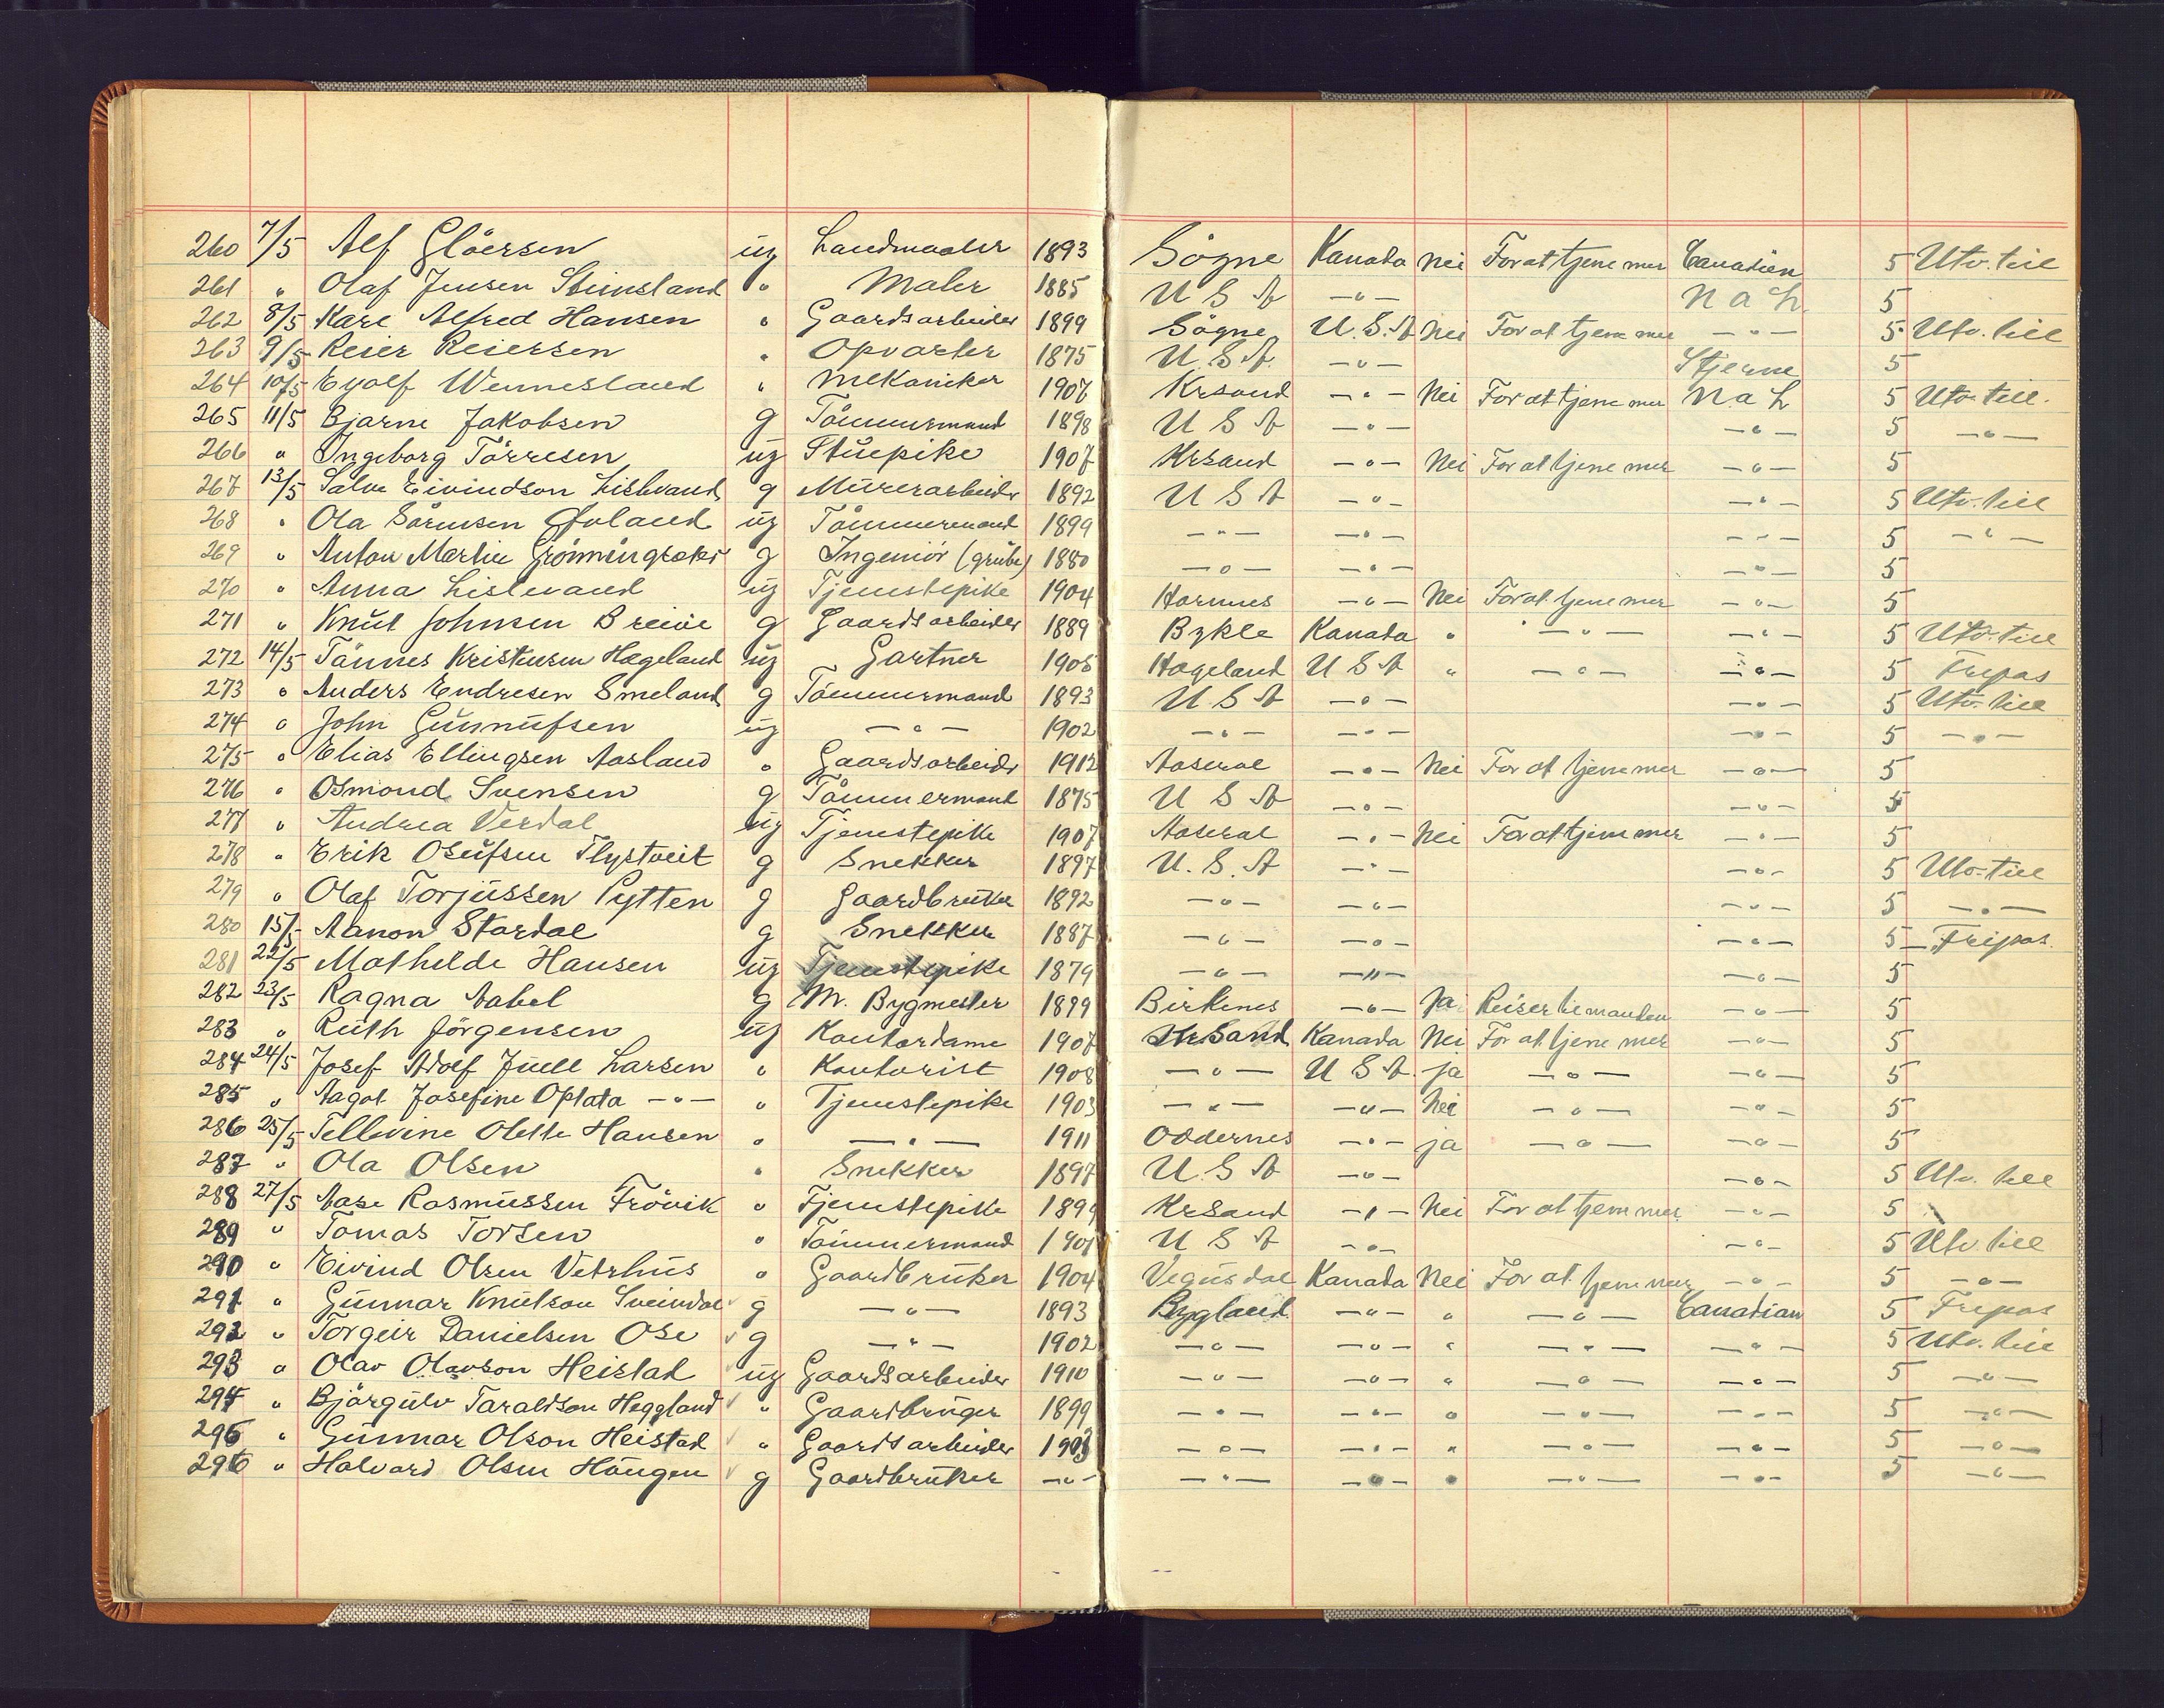 260 7/5 Alf Glöersen ug Landmaaler 1893 Sögne Kanada Nei For at tjene mer Canadien 5 Utv. till
261 " Olaf Jensen Stensland " Maler 1885 U S A —"— N a L 5
262 8/5 Kare Alfred Hansen " Gaardsarbeider 1899 Sögne U.S.A Nei For at tjene mer —"— 5 Utv. till
263 9/5 Reier Reiersen " Opvarter 1875 U S A. —"— Stjerne 5
264 10/5 Eyolf Wennesland " Mekaniker 1907 Krsand —"— Nei For at tjene mer N a L 5 Utv. till.
265 11/5 Bjarne Jakobsen g Tömmermand 1898 U S A —"— —"— 5 —"—
266 " Ingeborg Törresen ug Stuepike 1907 Krsand —"— Nei For at tjene mer —"— 5
267 13/5 Salve Eivindson Lislevand g Murerarbeider 1892 U S A —"— —"— 5 Utv. till
268 " Ola Sörensen ug Tömmermand 1899 —"— —"— —"— 5 —"—
269 " Anton Martin g Ingeniör (grube) 1880 —"— —"— —"— 5
270 " Anna Lislevand ug Tjenestepike 1904 Hornnes —"— Nei For at tjene mer —"— 5
271 " Knut Johnsen Breive g Gaardsarbeider 1889 Bykle Kanada " —"— —"— 5 Utv. till
272 14/5 Tönnes Kristensen Hægeland ug Gartner 1905 Hægeland U S A " —"— —"— 5 Fripas
273 " Anders Endresen Smeland g Tömmermand 1893 U.S A —"— —"— 5 Utv. till
274 " John Gunnufsen ug —"— 1902 —"— —"— —"— 5 —"—
275 " Elias Ellingsen Aasland " Gaardsarbeider 1912 Aaseral —"— Nei For at tjene mer —"— 5
276 " Osmond Svensen g Tömmermand 1875 U S A —"— —"— 5
277 " Andrea Verdal ug Tjenestepike 1907 Aaseral —"— Nei For at tjene mer —"— 5
278 " Erik Osufsen Flystveit g Snekker 1897 U. S. A —"— —"— 5 Utv. till
279 " Olaf Torjussen Pytten g Gaardbruker 1892 —"— —"— —"— 5 —"—
280 15/5 Aanon Stordal g Snekker 1887 —"— —"— —"— 5 — Fripas.
281 22/5 Mathilde Hansen ug Tjenestepike 1879 —"— —"— —"— 5
282 23/5 Ragna Aabel g M. Bygmester 1899 Birkenes —"— Ja Reiser til manden —"— 5
283 " Ruth Jörgensen ug Kontordame 1907 Krsand Kanada Nei For at tjene mer —"— 5
284 24/5 Josef Adolf Juell Larsen " Kontorist 1908 —"— U S A ja —"— —"— 5
285 " Aagot Josefine Oplata —"— " Tjenestepike 1903 —"— —"— Nei —"— —"— 5
286 25/5 Tellevine Olette Hansen " —"— 1911 Oddernes —"— ja —"— —"— 5
287 " Ola Olsen " Snekker 1897 U. S A —"— —"— 5 Utv. till
288 27/5 Aase Rasmussen Frövik " Tjenestepike 1899 Krsand —"— Nei For at tjene mer —"— 5
289 " Tomas Torsen " Tömmermand 1901 U S A —"— —"— 5 Utv. till
290 " Eivind Olsen Vetrhus " Gaardbruker 1904 Vegusdal Kanada Nei For at tjene mer —"— 5 —"—
291 " Gunnar Knutson Sveindal g —"— 1893 Bygland —"— " —"— Canadian 5 Fripas
292 " Torgeir Danielsen Ose g —"— 1902 —"— —"— " —"— —"— 5 Utv. till
293 " Olav Olavson Heistad ug Gaardsarbeider 1910 —"— —"— " —"— —"— 5 —"—
294 " Björgulv Taraldson Heggland " Gaardbruger 1899 —"— —"— " —"— —"— 5 —"—
295 " Gunnar Olson Heistad " Gaardsarbeider 1903 —"— —"— " —"— —"— 5 —"—
296 " Halvard Olsen Haugen g Gaardbruker —"— —"— —"— " —"— —"— 5 —"—